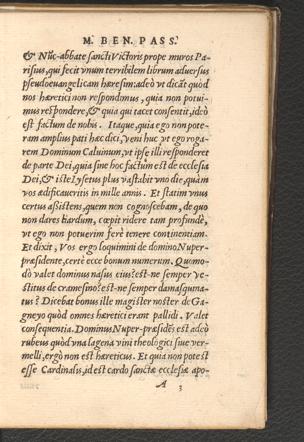 M. BEN. PASS.
& Nũc abbate sancti Victoris prope muros Pa-
risius, qui fecit vnum terribilem librum aduersus
pseudoeuangelicam hæresim: adeò vt dicãt quòd
nos hæretici non respondimus, quia non potui-
mus respõdere, & quia qui tacet consentit, ideò
est factum de nobis. Itaque, quia ego non pote-
ram amplius pati hæc dici, veni huc vt ego roga-
rem Dominum Caluinum, vt ipse illi responderet
de parte Dei, quia sine hoc factum est de ecclesia
Dei, & iste Lysetus plus vastabit vno die, quàm
vos ædificaueritis in mille annis. Et statim vnus
certus assistens, quem non cognoscebam, de quo
non dares liardum, cœpit ridere tam profundè,
vt ego non potuerim ferè tenere continentiam.
Et dixit, Vos ergo loquimini de domino Nuper-
præsidente, certè ecce bonum numerum. Quomo-
dò valet dominus nasus eius? est-ne semper ve-
stitus de cramesino? est-ne semper damasquina-
tus? Dicebat bonus ille magister noster de Ga-
gneyo quòd omnes hæretici erant pallidi. Valet
consequentia. Dominus Nuper-præsidẽs est adeò
rubeus quòd vna lagena vini theologici siue ver-
melli, ergò non est hæreticus. Et quia non potest
esse Cardinalis, id est cardo sanctæ ecclesiæ apo-
A 3